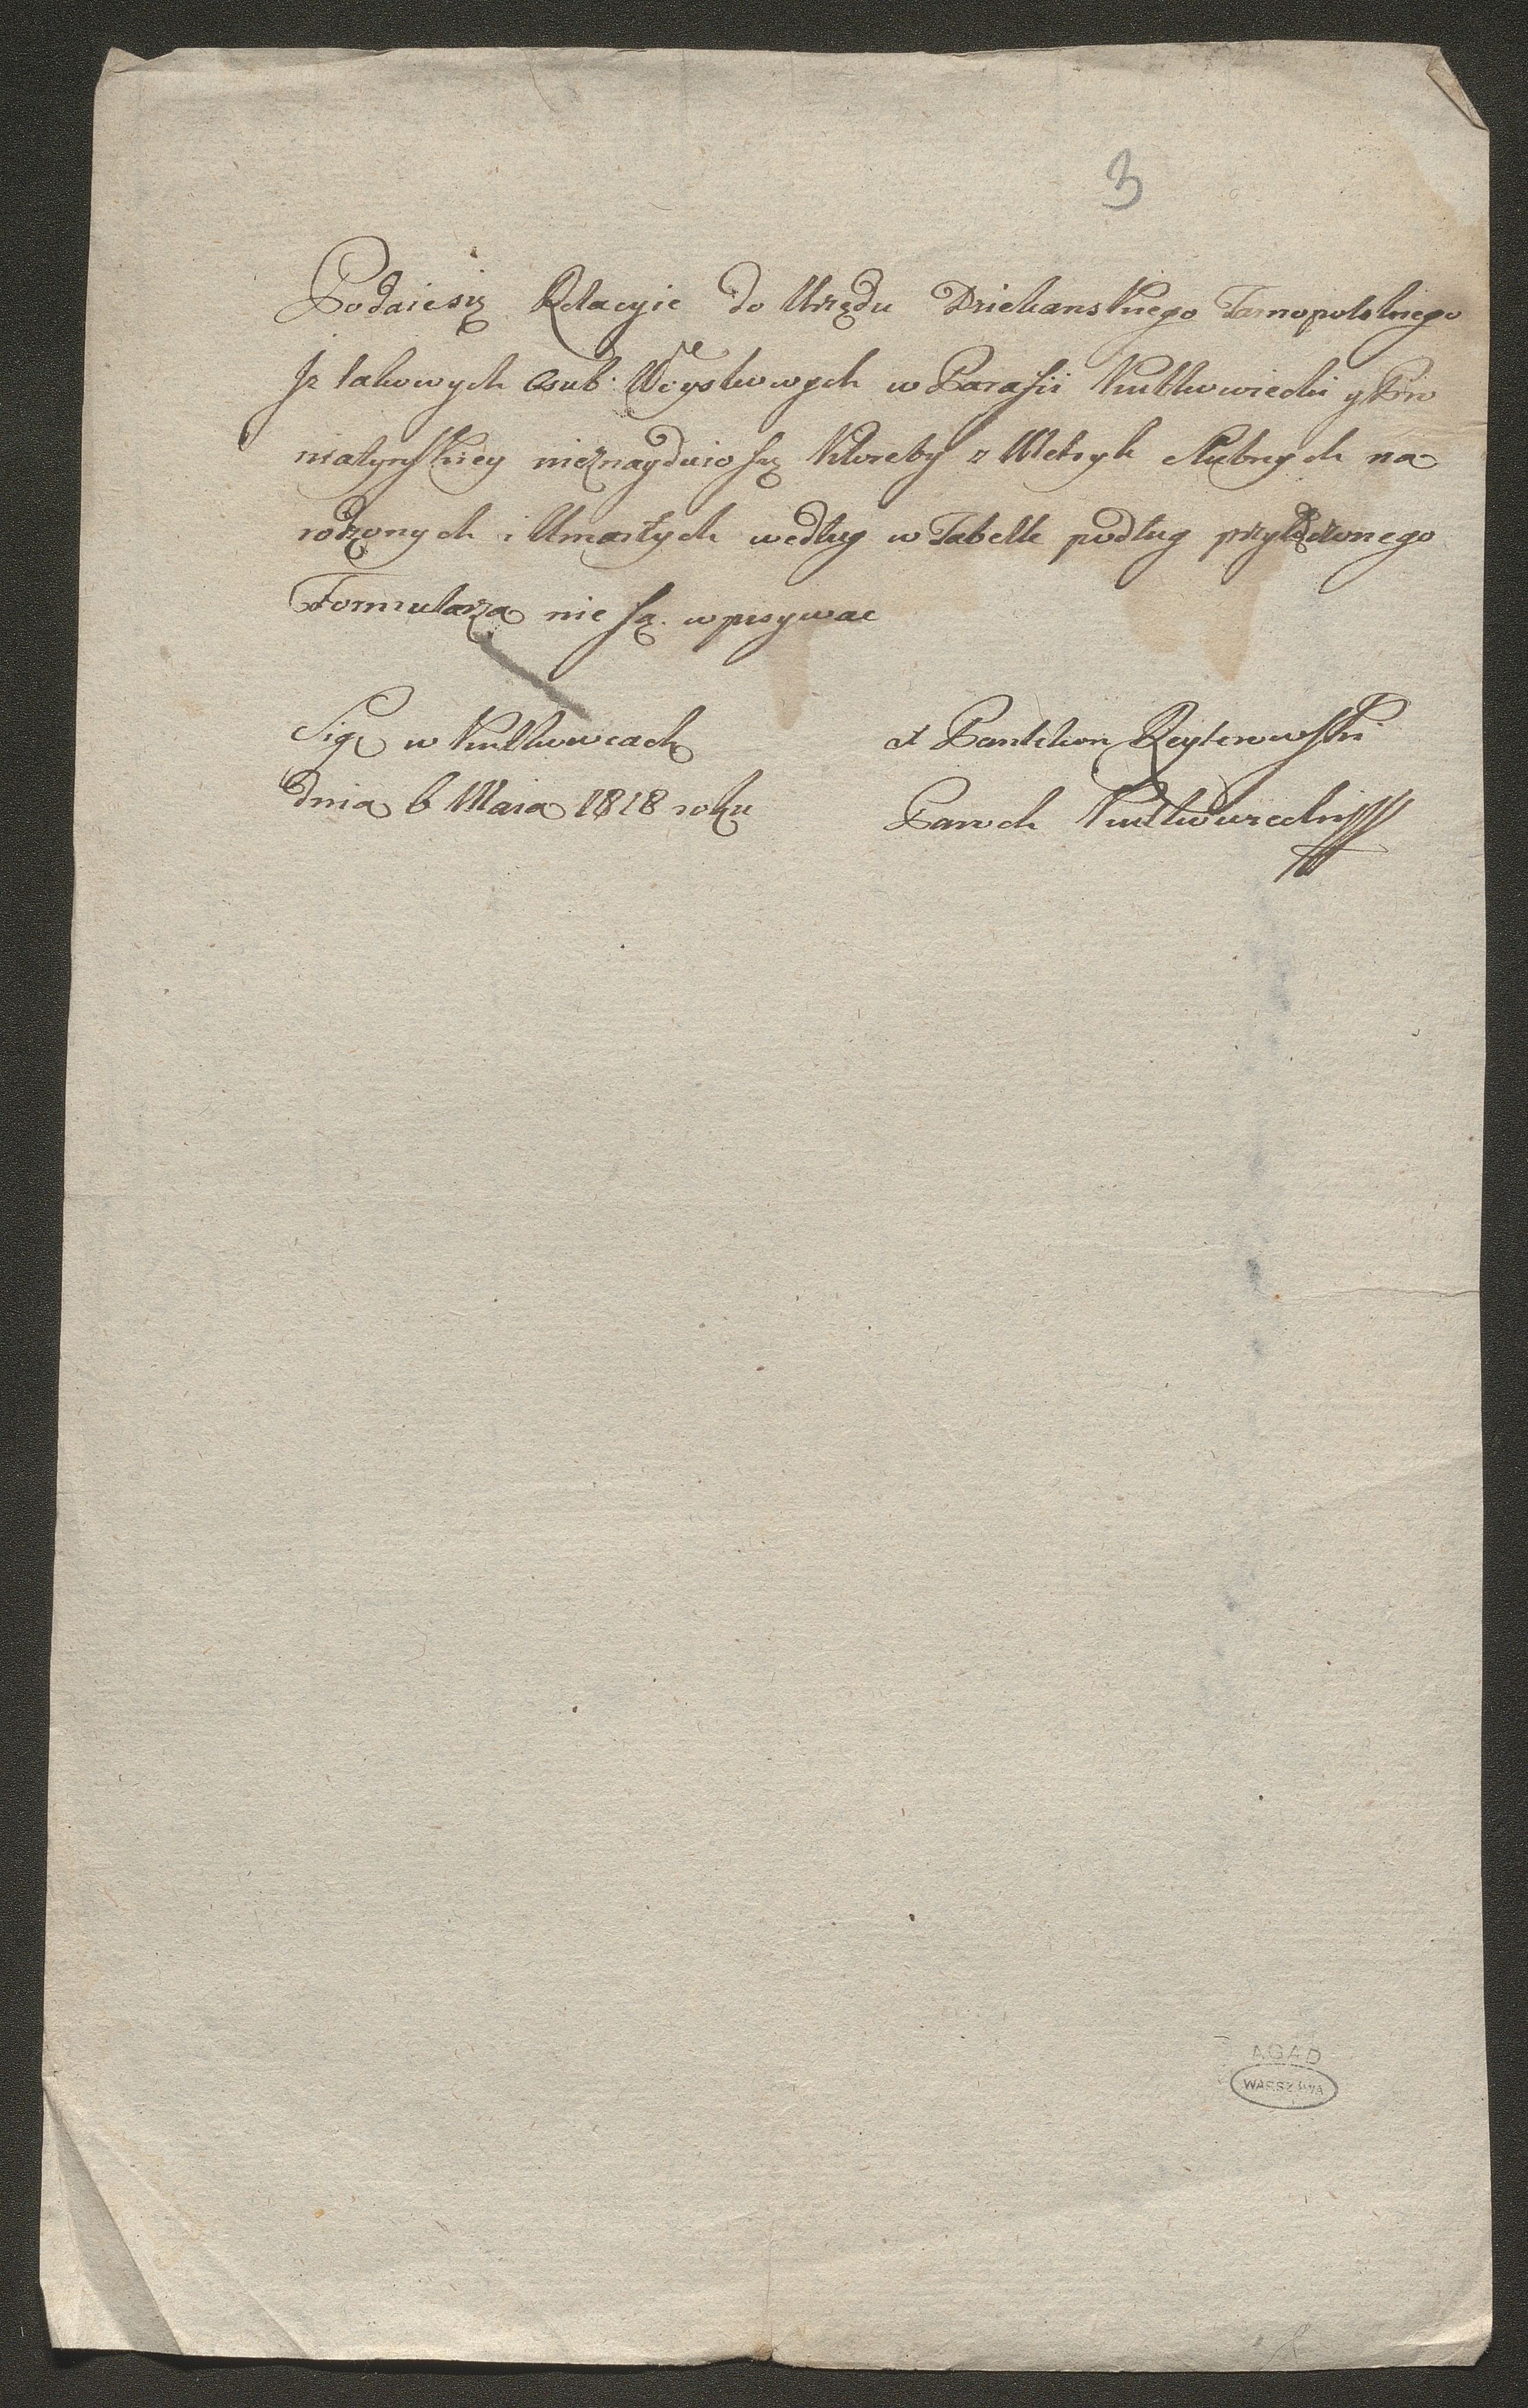 3
Podaie się Relacyie do Urzędu Dziekanskiego Tarnopolskiego
Jz takowych Osub Woyskowych w Parafii Kutkowiecki y Pro
niatynskiey nieznayduio się Ktoreby z Metryk slubnych na
rodzonych i Umarłych według w Tabelle podług przyłączonego
Formularza nie są wpisywac
Sig w Kutkowcach
dnia 6 Maia 1818 roku
X Pantelion Reyterowski
Paroch Kutkowiecki
AGAD
WARSZAWA